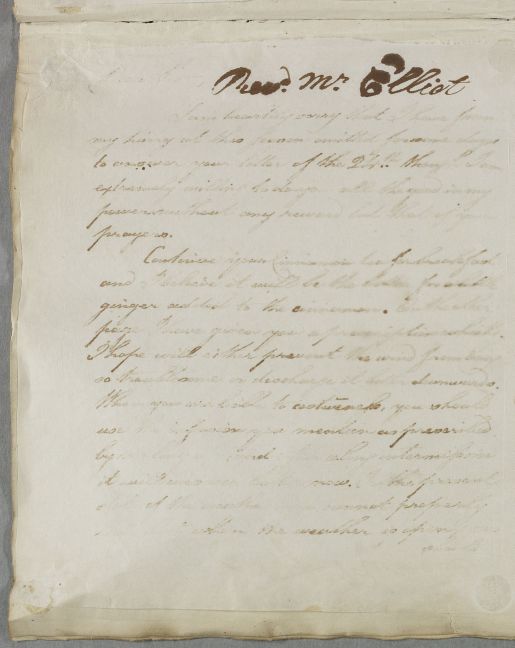 Revd. Mr Elliot
I am heartily sorry that I have from
my hurry at this season omitted for some days
to answer your letter of the 24th I am
extremely willing to do you all the good in my
power without any reward but that of your
prayers.
Continue your Cinnamon tea for breakfast
and I believe it will be the better for a little
ginger added to the cinnamon. On the other
page I have given you a prescription which
I hope will either prevent the wind from being
so troublesome or discharge it better downwards.
When you are liable to costiveness, you should
use the infusion you mention as prescribed
by and
it will now. the present
state of the weather you cannot properly
when the weather is open